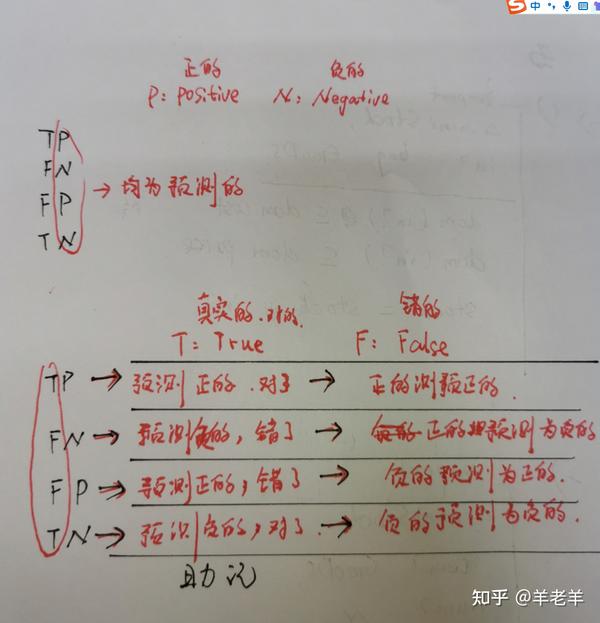 中
正的 负的
P: positive N: Negative
TP
FN
FP
TN
→ 均为预测的
真实的.对的. 错的
T: True F: False
TP → 预测正的.对了 → 正的测预正的.
FN → 预测负的，错了 → 正的 预测为负的
FP → 预测正的，错了 → 负的预测为正的.
TN → 预测负的，对了. → 负的预测为负的.
助记
知乎 @羊老羊